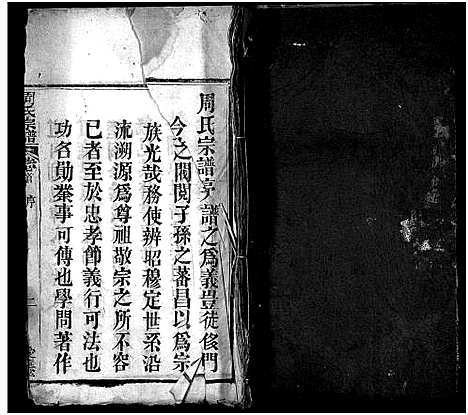 周氏宗譜序 譜之爲義豈徒侈門
今之閥閱子孫之蕃昌以爲宗
族光哉務使辨昭穆定世系沿
流溯源爲尊祖敬宗之所不容
已者至於忠孝節義行可法也
功名勛業事可傳也學問著作
周氏宗譜 卷首 序 一